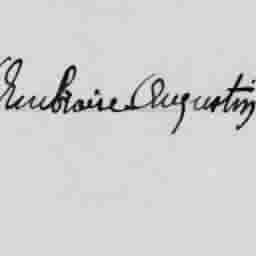 Ambroise Augustin